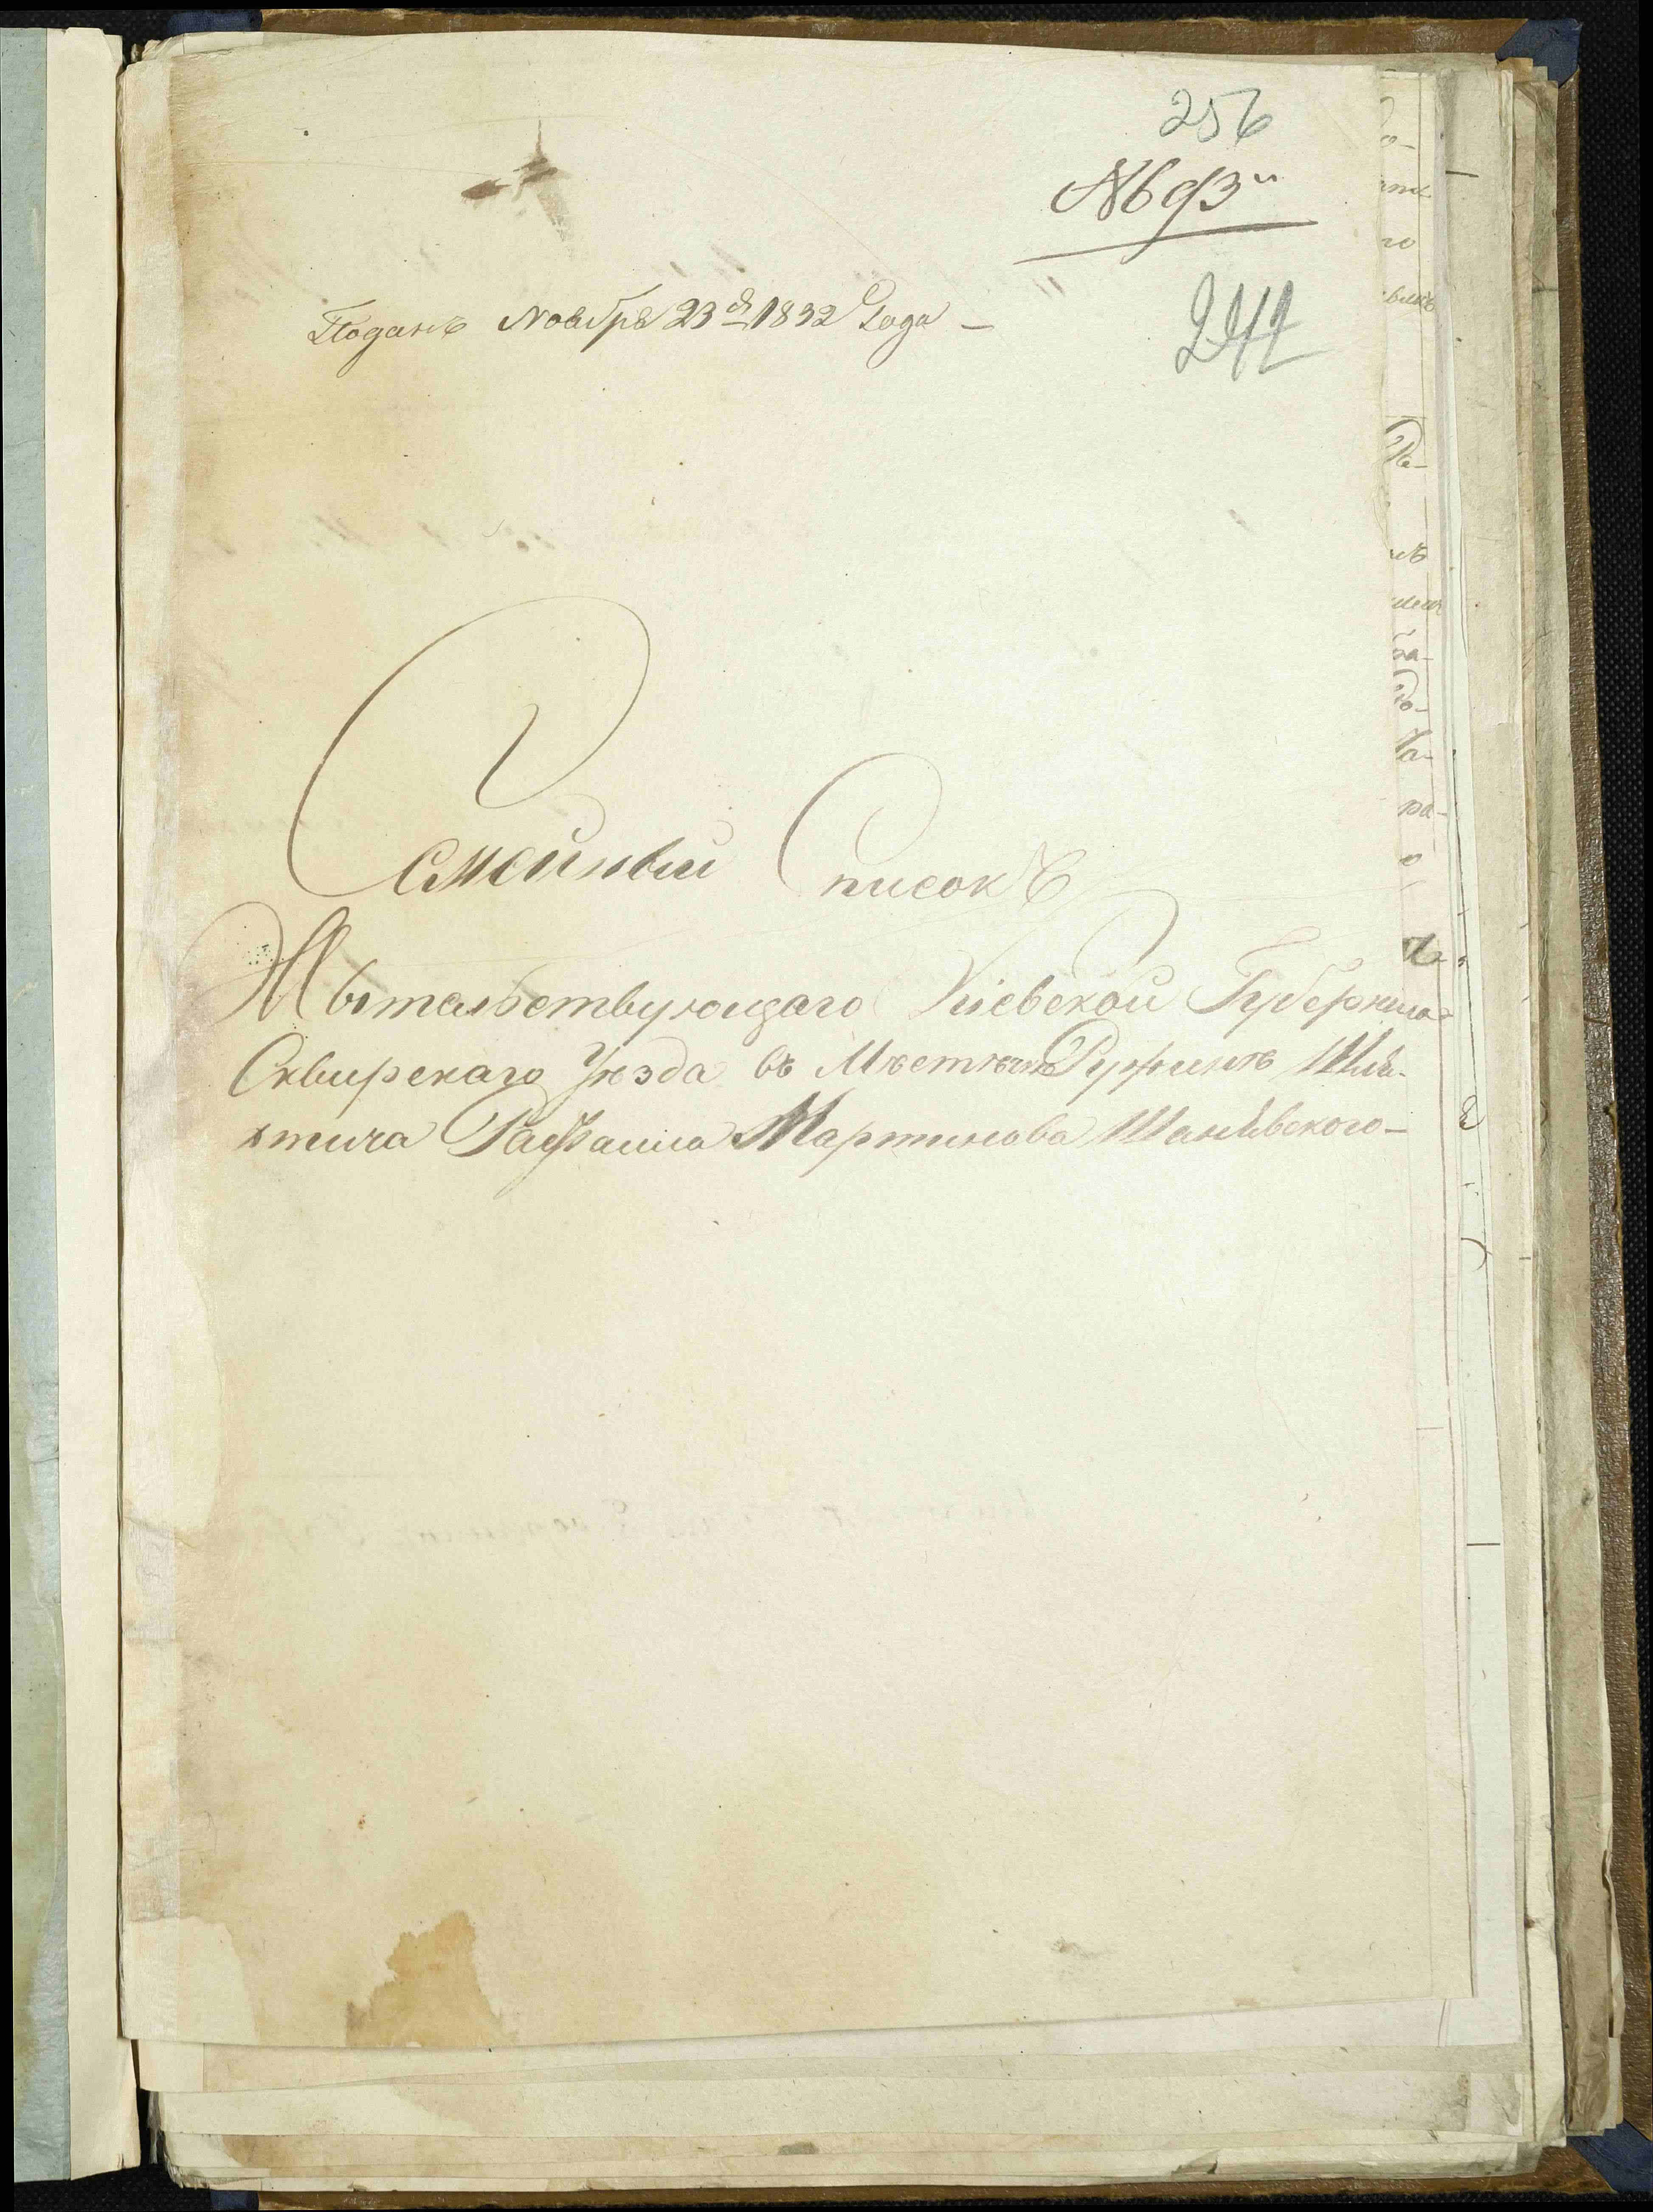 256
№ 93й
Поданъ Ноября 23го 1832 Года —
242
Семейный Списокъ
Жытельствующаго Кіевской Губерніи
Сквирскаго Уѣзда въ Мѣстѣчкѣ Ружинѣ Шля-
хтича Рафаила Мартинова Шанявского —